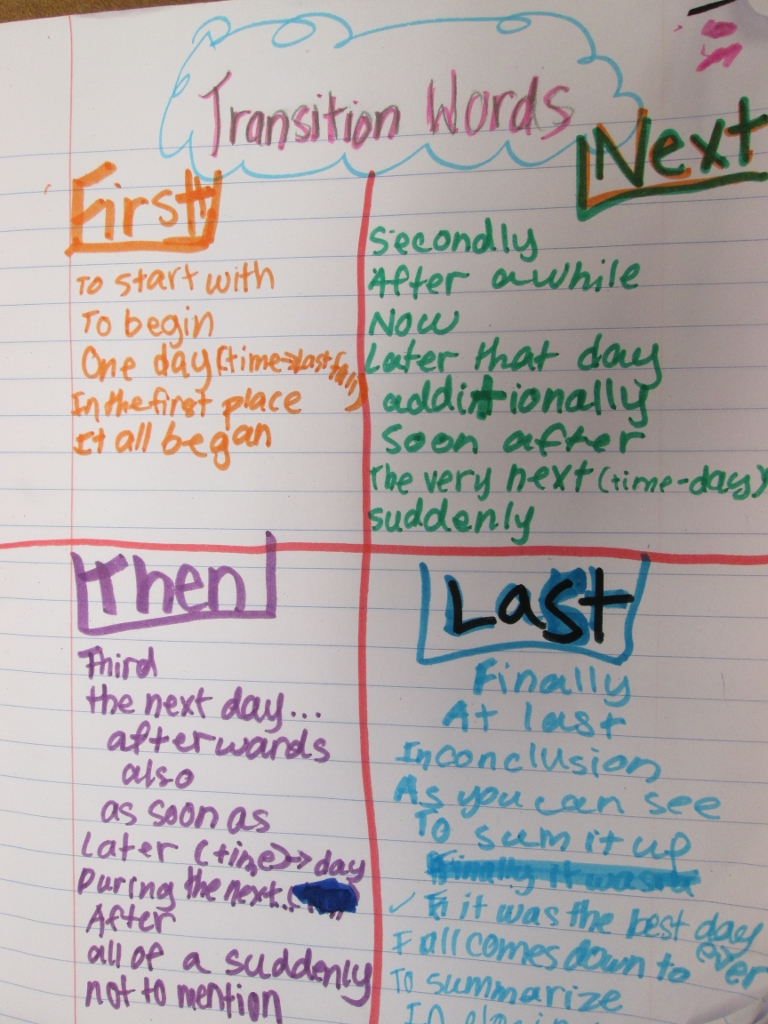 Transition Words
First
To start with
To begin
One day (time→last fall)
In the first place
It all began
Next
Secondly
After awhile
Now
Later that day
additionally
Soon after
The very next (time-day)
suddenly
Then
Third
the next day...
afterwards
also
as soon as
Later (time)→day
During the next..
After
all of a suddenly
not to mention
Last
Finally
At last
In conclusion
As you can see
To sum it up
Finally it was
✓ it was the best day ever
I all comes down to
To summarize
In